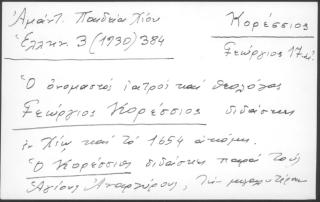 Ἀμάντ. Παιδεία Χίου
Ἑλλην. 3 (1930) 384
Κορέσσιος
Γεώργιος 17 αἰ.
Ὁ ὀνομαστός ἰατρός καί θεολόγος
Γεώργιος Κορέσσιος διδάσκει
ἐν Χίῳ καί τό 1654 ἀκόμη.
Ὁ Κορέσσιος διδάσκει παρά τούς
Ἁγίους Ἀναργύρους, τήν μεγαλυτέραν